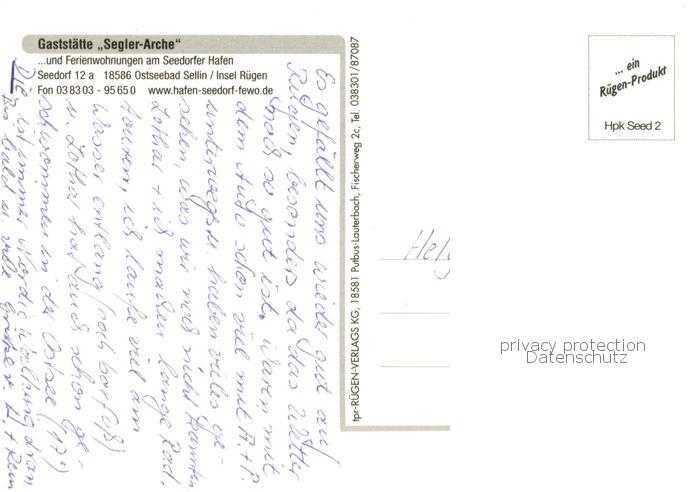 Gaststätte „Segler-Arche"
...und Ferienwohnungen am Seedorfer Hafen
Seedorf 12 a 18586 Ostseebad Sellin / Insel Rügen
Fon 03 83 03 - 95 65 0 www.hafen-seedorf-fewo.de
Es gefällt uns wieder gut auf
Rügen, besonders da das Wetter
noch so gut ist. Waren mit
dem Auto schon viel mit A. + P.
unterwegs u. haben vieles ge-
sehen, was wir noch nicht kannten
Lothar + ich machen lange Rad.
touren, ich laufe viel am
Wasser entlang (noch barfuß)
u. Lothar hat auch schon ge-
schwommen in der Ostsee (17°)
Die ist immer
Bis bald u. viele Grüße
tpr-RÜGEN-VERLAGS KG, 18581 Putbus-Lauterbach, Fischerweg 2c, Tel. 038301/87087
... ein
Rügen-Produkt
Hpk Seed 2
Helg
privacy protection
Datenschutz